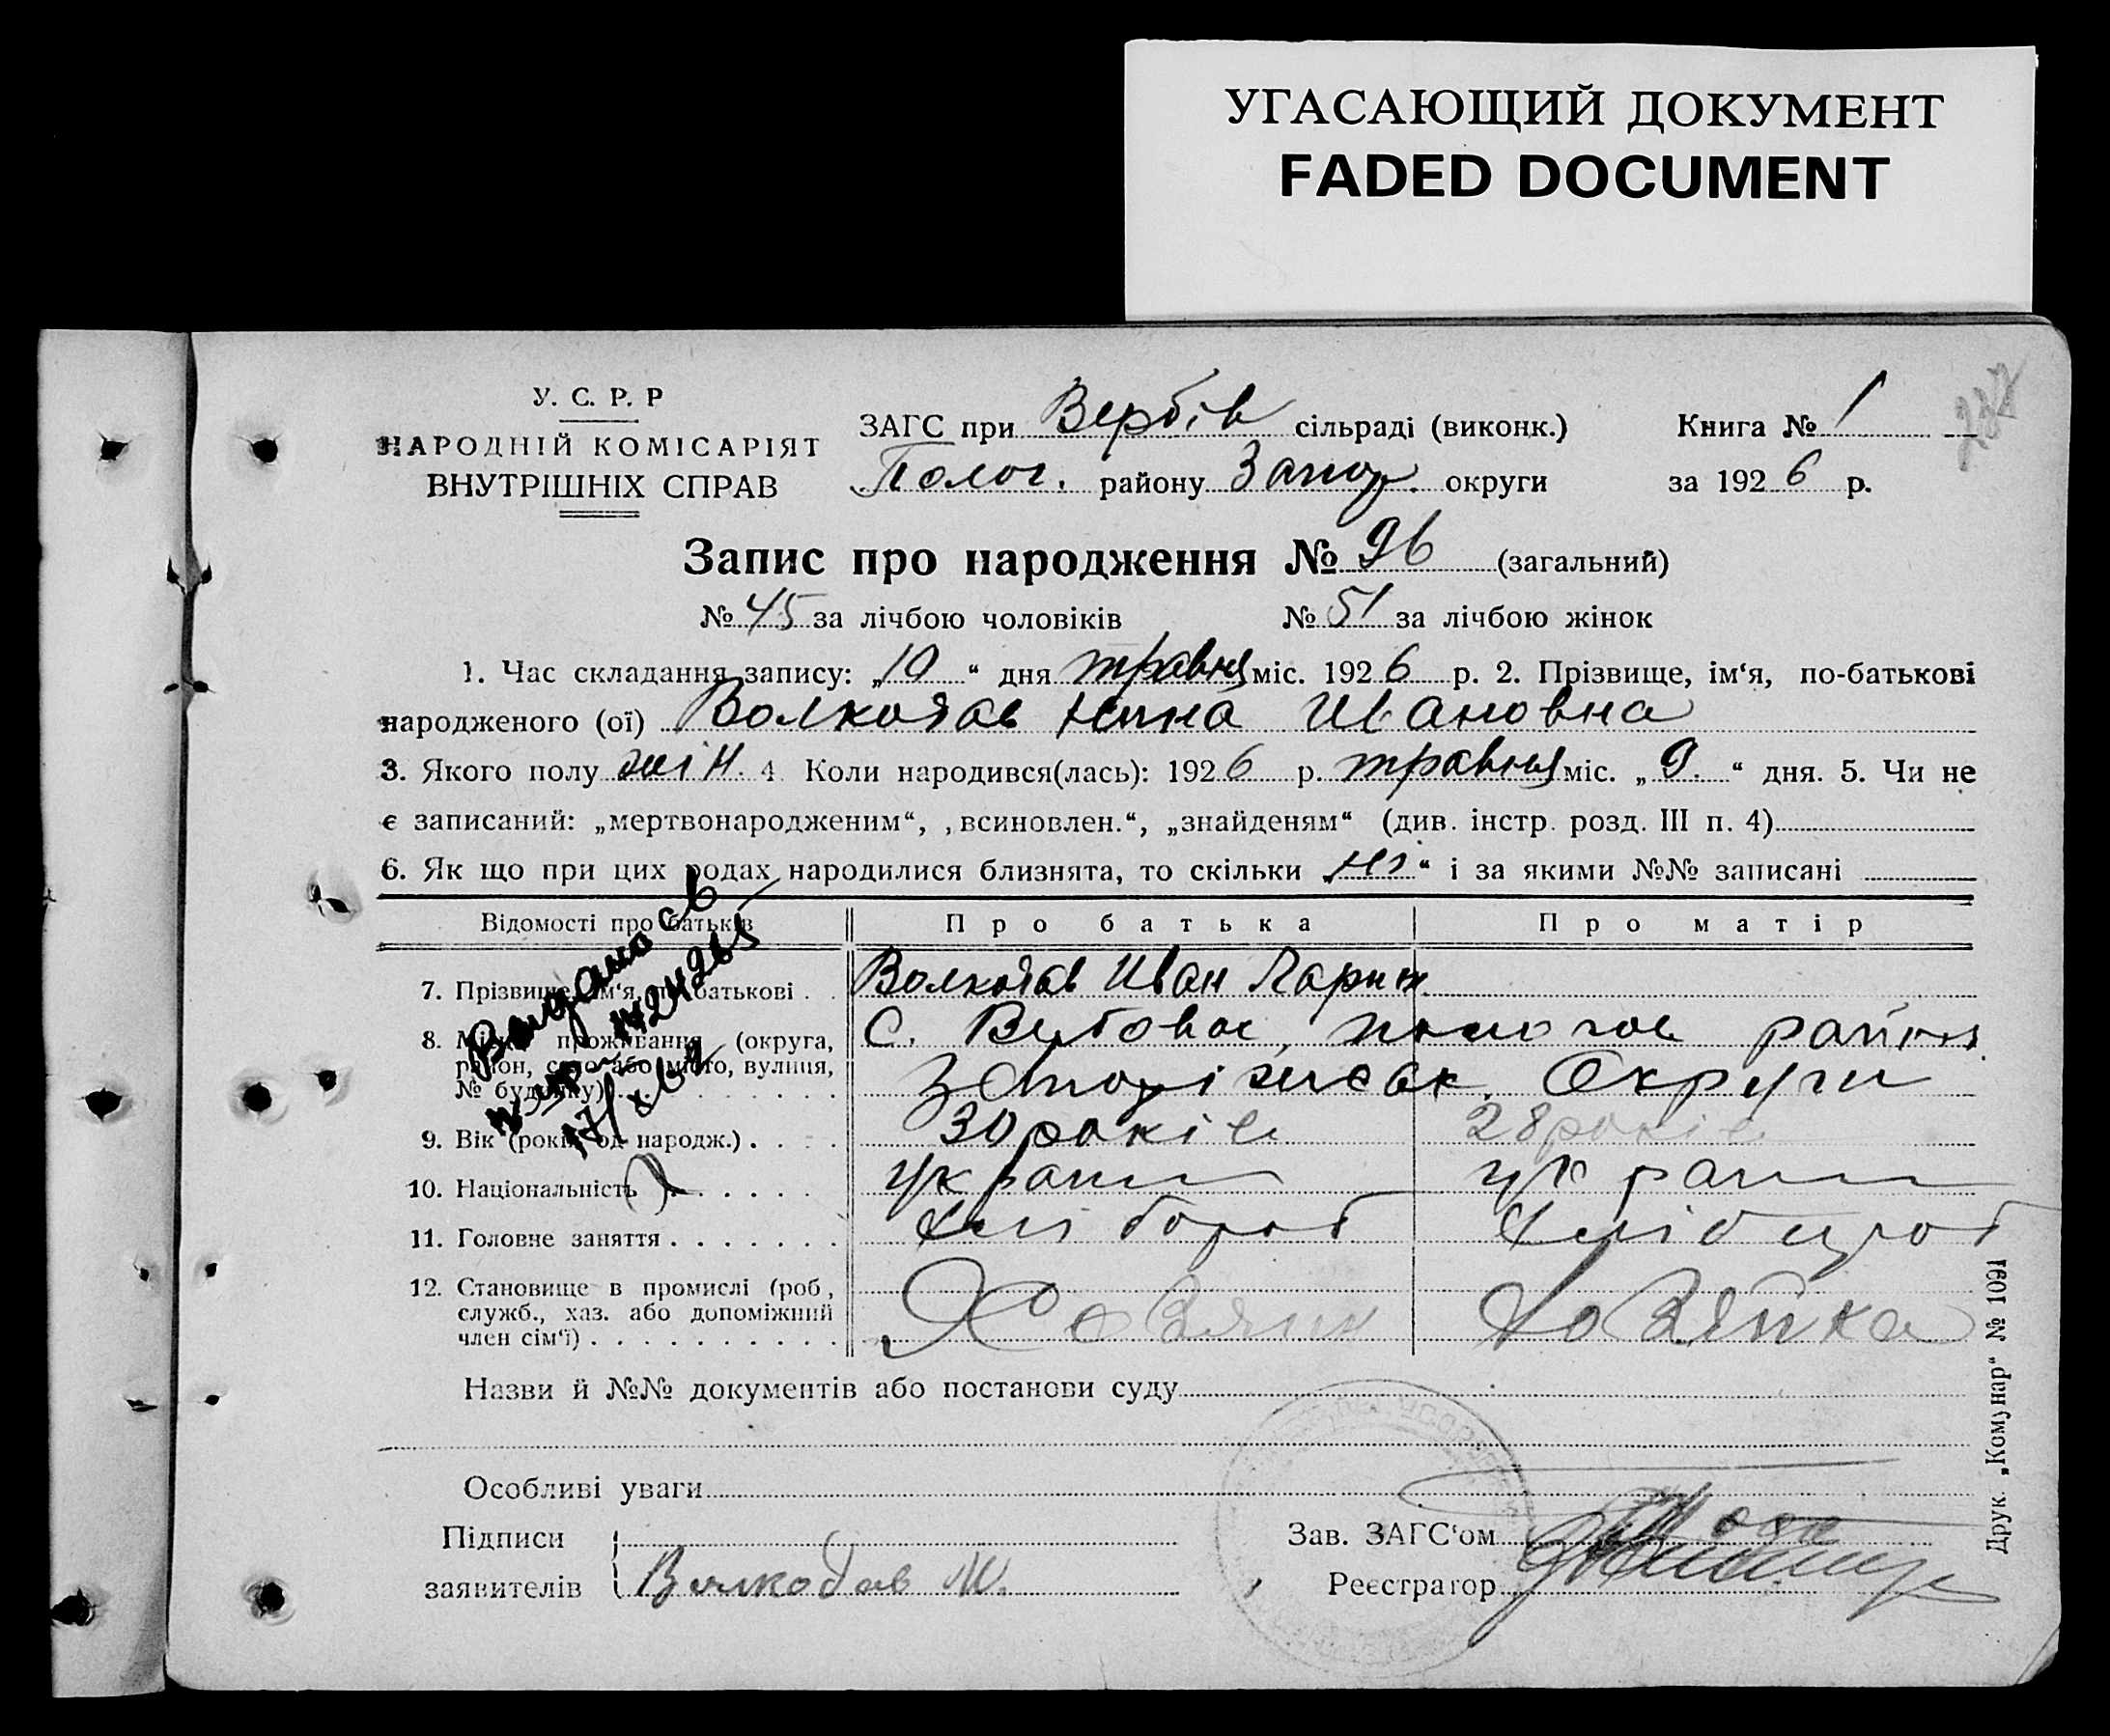 УГАСАЮЩИЙ ДОКУМЕНТ
FADED DOCUMENT
У. С. Р. Р
НАРОДНІЙ КОМІСАРІЯТ
ВНУТРІШНІХ СПРАВ
ЗАГС при Вербів сільраді (виконк.)
Полог. району Запор. округи
Книга № 1
за 1926 р.
Запис про народження № 96 (загальний)
№ 45 за лічбою чоловіків № 51 за лічбою жінок
1. Час складання запису: „10“ дня травня міс. 1926 р. 2. Прізвище, ім‘я, по-батькові
народженого (ої) Волкодав Нина Ивановна
3. Якого полу жін. 4 Коли народився(лась): 1926 р. травня міс. „9.“ дня. 5. Чи не
є записаний: „мертвонародженим“, „всиновлен.“, „знайденям“ (див. інстр. розд. III п. 4)
6. Як що при цих родах народилися близнята, то скільки „ні“ і за якими №№ записані
Відомості про батьків Про батька Про матір
7. Прізвище, ім‘я, по-батькові . . Волкодав Иван Ларин
8. Місце проживання (округа, район, село або місто, вулиця, № будинку)
С. Вербове, район
Округи
9. Вік (років од народж.) . . . . 30 років 28 років
10. Національність украин украин
11. Головне заняття . . . . . . . хлібороб хлібороб
12. Становище в промислі (роб, служб., хаз. або допоміжний член сім‘ї) . . . . . . . . . .
Хозяин Хозяйка
Видано св
Назви й №№ документів або постанови суду
Особливі уваги
Підписи
заявителів Волкодав И.
Зав. ЗАГС‘ом
Реєстратор
Друк. „Комунар“ № 1091